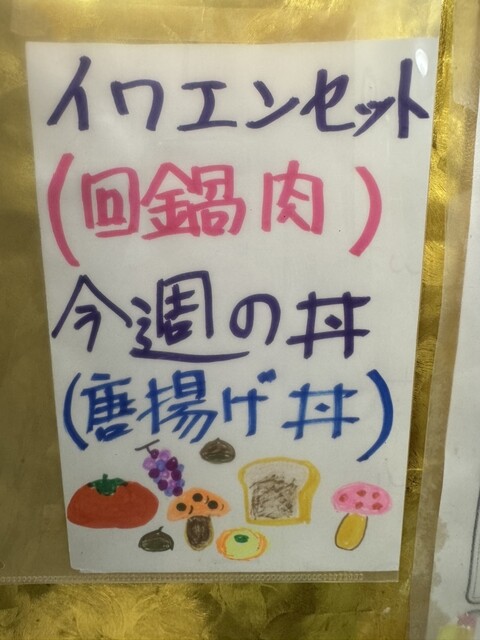 イワエンセット
(回鍋肉)
今週の丼
(唐揚げ丼)